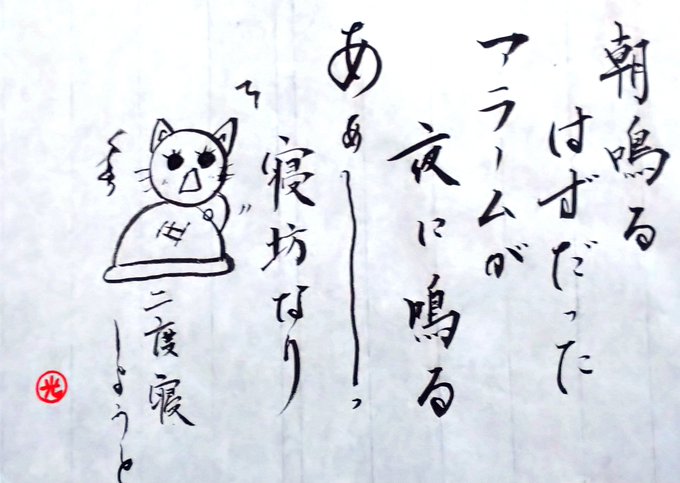 朝鳴る
はずだった
アラームが
夜に鳴る
あぁーっ
寝坊なり
二度寝
しようと
光